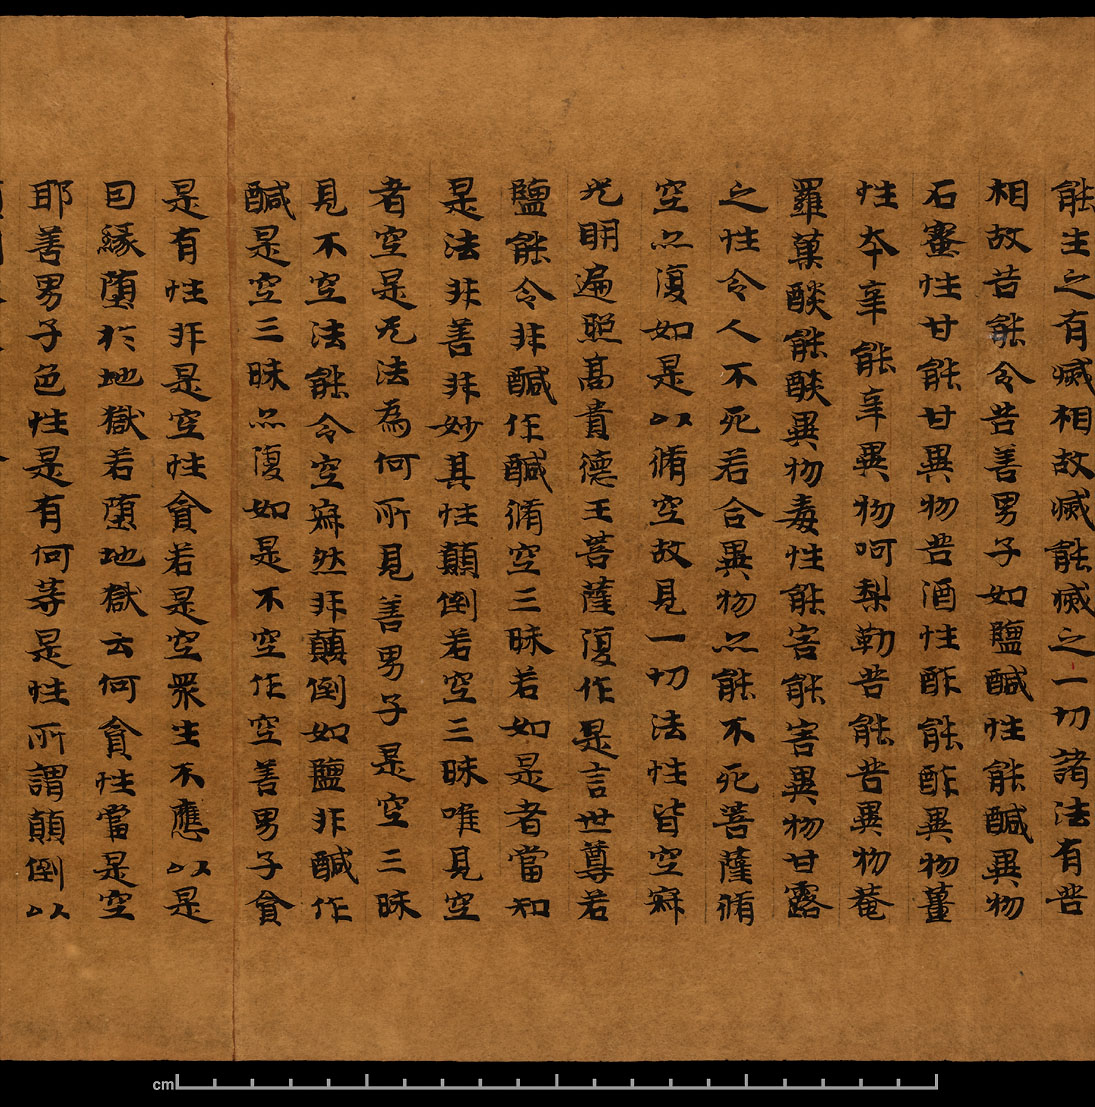 能生之有滅相故滅能滅之一切諸法有苦
相故苦能令苦善男子如鹽鹹性能鹹異物
石蜜性甘能甘異物苦酒性酢能酢異物薑
性本辛能辛異物呵梨勒苦能苦異物菴
羅菓能異物毒性能害能害異物甘露
之性令人不死若合異物亦能不死菩薩脩
空亦復如是以脩空故見一切法性皆空寂
光明遍照高貴德王菩薩復作是言世尊若
鹽能令非鹹作鹹脩空三昧若如是者當知
是法非善非妙其性顛倒若空三昧唯見空
者空是无法為何所見善男子是空三昧
見不空法能令空寂然非顛倒如鹽非鹹作
鹹是空三昧亦復如是不空作空善男子貪
是有性非是空性貪若是空眾生不應以是
因緣墮於地獄若墮地獄云何貪性當是空
耶善男子色性是有何等是性所謂顛倒以
cm